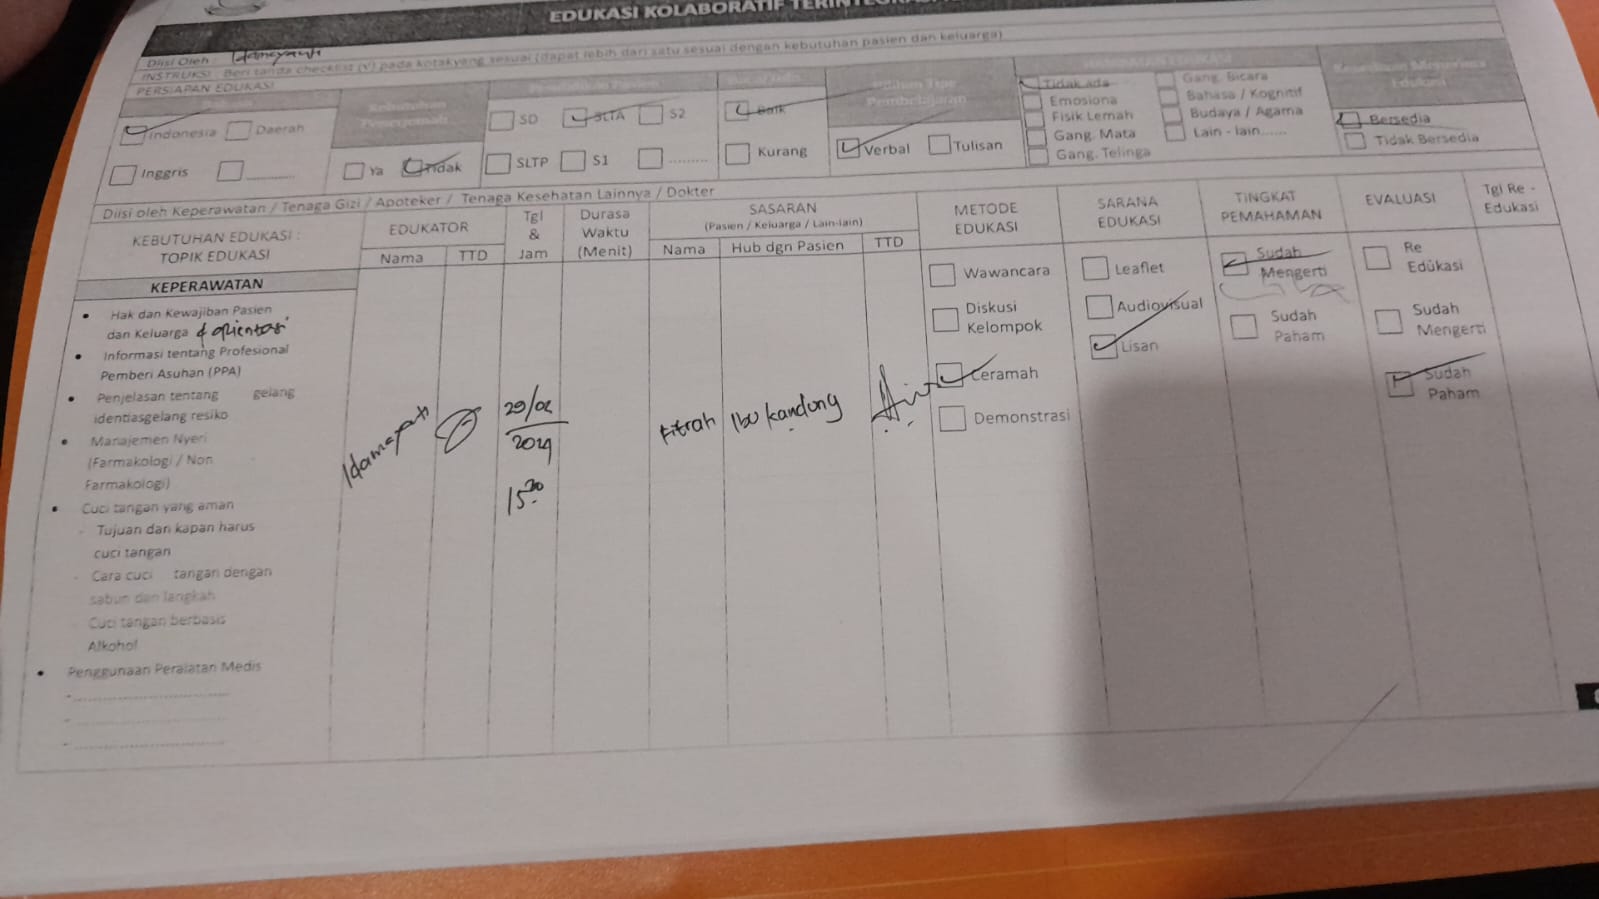 EDUKASI KOLABORATIF
Diisi Oleh :
INSTRUKSI : Beri tanda checklist (√) pada kotakyang sesuai (dapat lebih dari satu sesuai dengan kebutuhan pasien dan keluarga)
PERSIAPAN EDUKASI
Indonesia Daerah
Inggris ............
Kebutuhan
Ya Tidak
SD SLTA S2
SLTP S1 .........
Baik
Kurang
Pembelajaran
Verbal Tulisan
Tidak ada
Emosiona
Fisik Lemah
Gang. Mata
Gang. Telinga
Gang. Bicara
Bahasa / Kognitif
Budaya / Agama
Lain - lain......
Edukasi
Bersedia
Tidak Bersedia
Diisi oleh Keperawatan / Tenaga Gizi / Apoteker / Tenaga Kesehatan Lainnya / Dokter
KEBUTUHAN EDUKASI :
TOPIK EDUKASI
EDUKATOR
Nama TTD
Tgl
&
Jam
Durasa
Waktu
(Menit)
SASARAN
(Pasien / Keluarga / Lain-lain)
Nama Hub dgn Pasien TTD
METODE
EDUKASI
SARANA
EDUKASI
TINGKAT
PEMAHAMAN
EVALUASI
Tgl Re -
Edukasi
KEPERAWATAN
• Hak dan Kewajiban Pasien
dan Keluarga & orientasi
• Informasi tentang Profesional
Pemberi Asuhan (PPA)
• Penjelasan tentang gelang
identiasgelang resiko
• Manajemen Nyeri
(Farmakologi / Non
Farmakologi)
• Cuci tangan yang aman
- Tujuan dan kapan harus
cuci tangan
- Cara cuci tangan dengan
sabun dan langkah
- Cuci tangan berbasis
Alkohol
• Penggunaan Peralatan Medis
29/02
2024
15.30
Fitrah Ibu kandung
Wawancara
Diskusi
Kelompok
Ceramah
Demonstrasi
Leaflet
Audiovisual
Lisan
Sudah
Mengerti
Sudah
Paham
Re
Edukasi
Sudah
Mengerti
Sudah
Paham